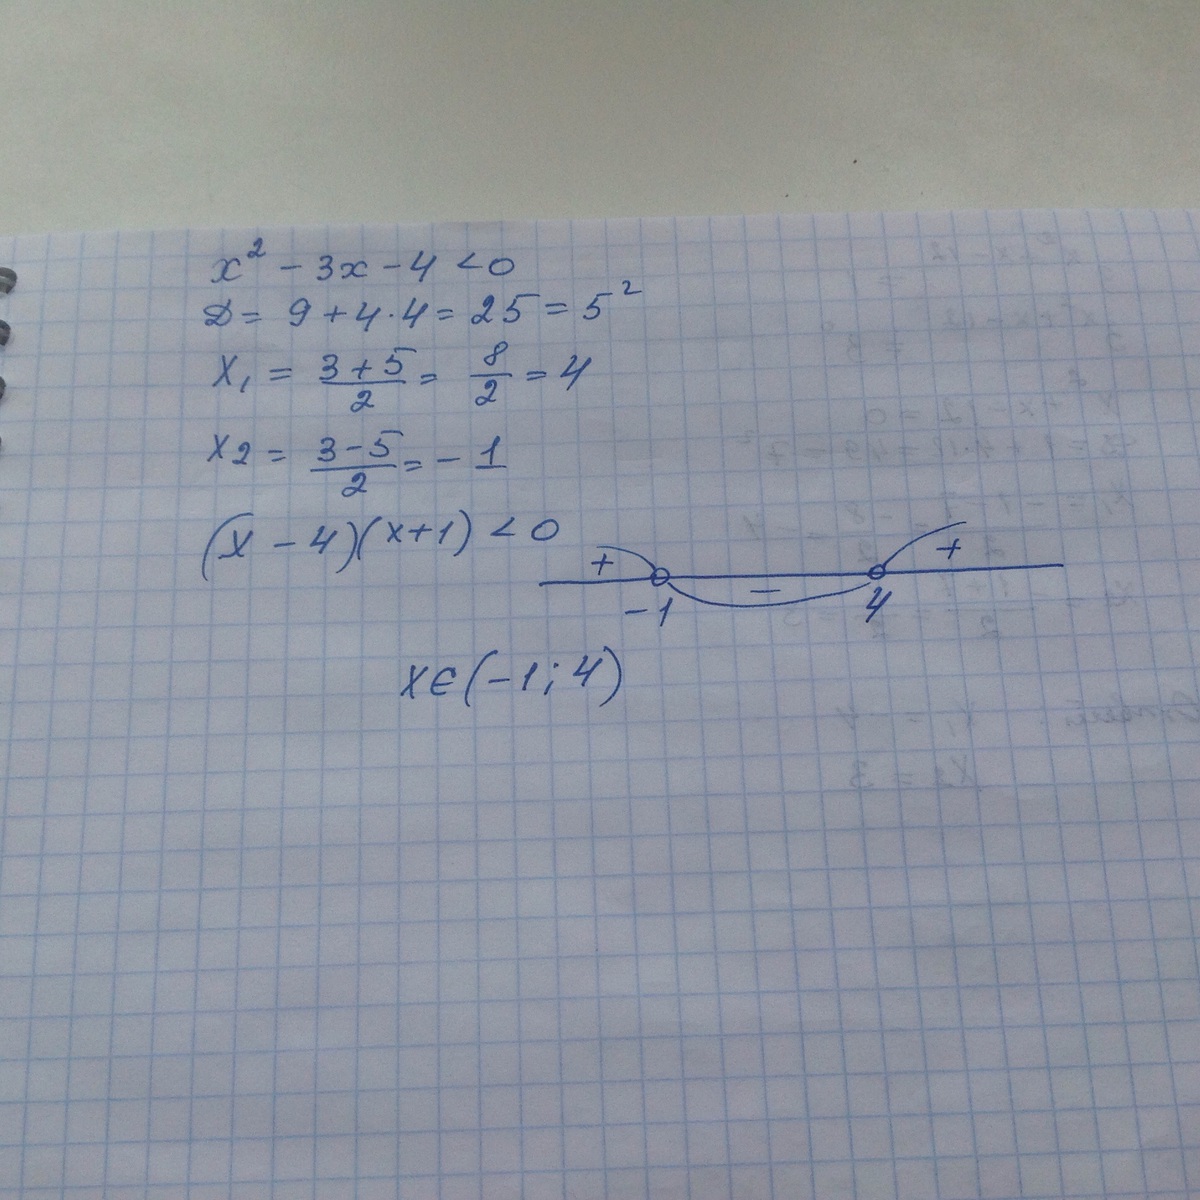 x² - 3x - 4 < 0
D = 9 + 4·4 = 25 = 5²
x₁ = (3+5)/2 = 8/2 = 4
x₂ = (3-5)/2 = -1
(x - 4)(x+1) < 0
+ - +
-1 4
x∈(-1; 4)